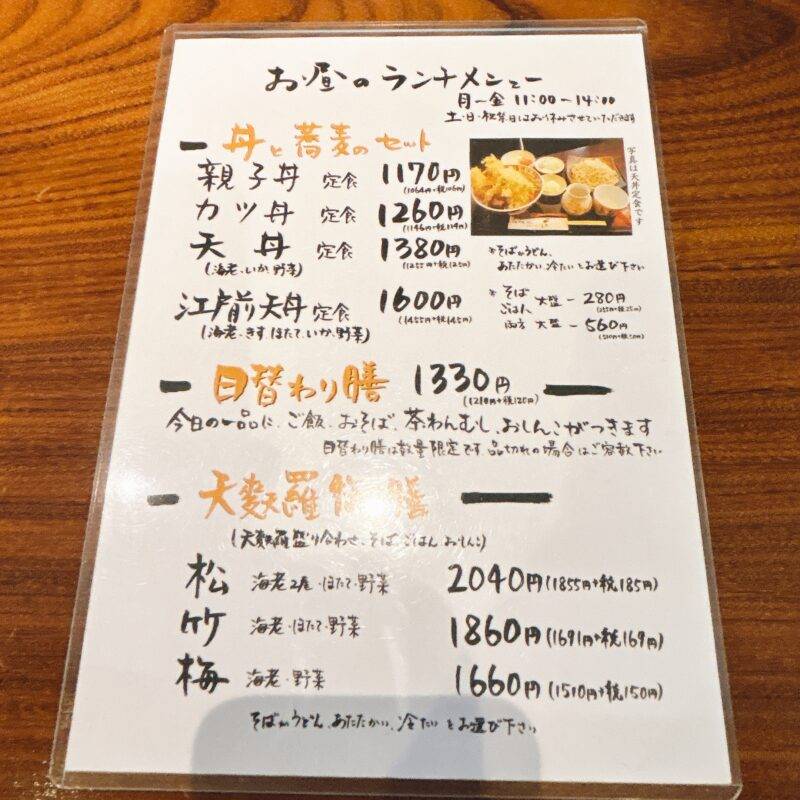 お昼のランチメンュー
月ー金 11:00~14:00
土・日・祝祭日はお休みさせていただきます
丼と蕎麦のセット
親子丼 定食 1170円
(1064円+税106円)
カツ丼 定食 1260円
(1146円+税114円)
天丼 定食 1380円
(海老、いか、野菜) (1255円+税125円)
江戸前天丼 定食 1600円
(海老、きす、ほたて、いか、野菜) (1455円+税145円)
写真は天丼定食です
*そばかうどん、
あたたかい、冷たいとお選び下さい
*そば 大盛ー280円
ごはん (255円+税25円)
両方 大盛ー560円
(510円+税50円)
日替わり膳 1330円
(1210円+税120円)
今日の一品に、ご飯、おそば、茶わんむし、おしんこがつきます
日替わり膳は数量限定です。品切れの場合はご容赦下さい
天麩羅 膳
(天麩羅盛り合わせ、そば、ごはん、おしんこ)
松 海老2尾・ほたて・野菜 2040円(1855円+税185円)
竹 海老・ほたて・野菜 1860円(1691円+税169円)
梅 海老・野菜 1660円(1510円+税150円)
そばかうどん、あたたかい、冷たいとお選び下さい